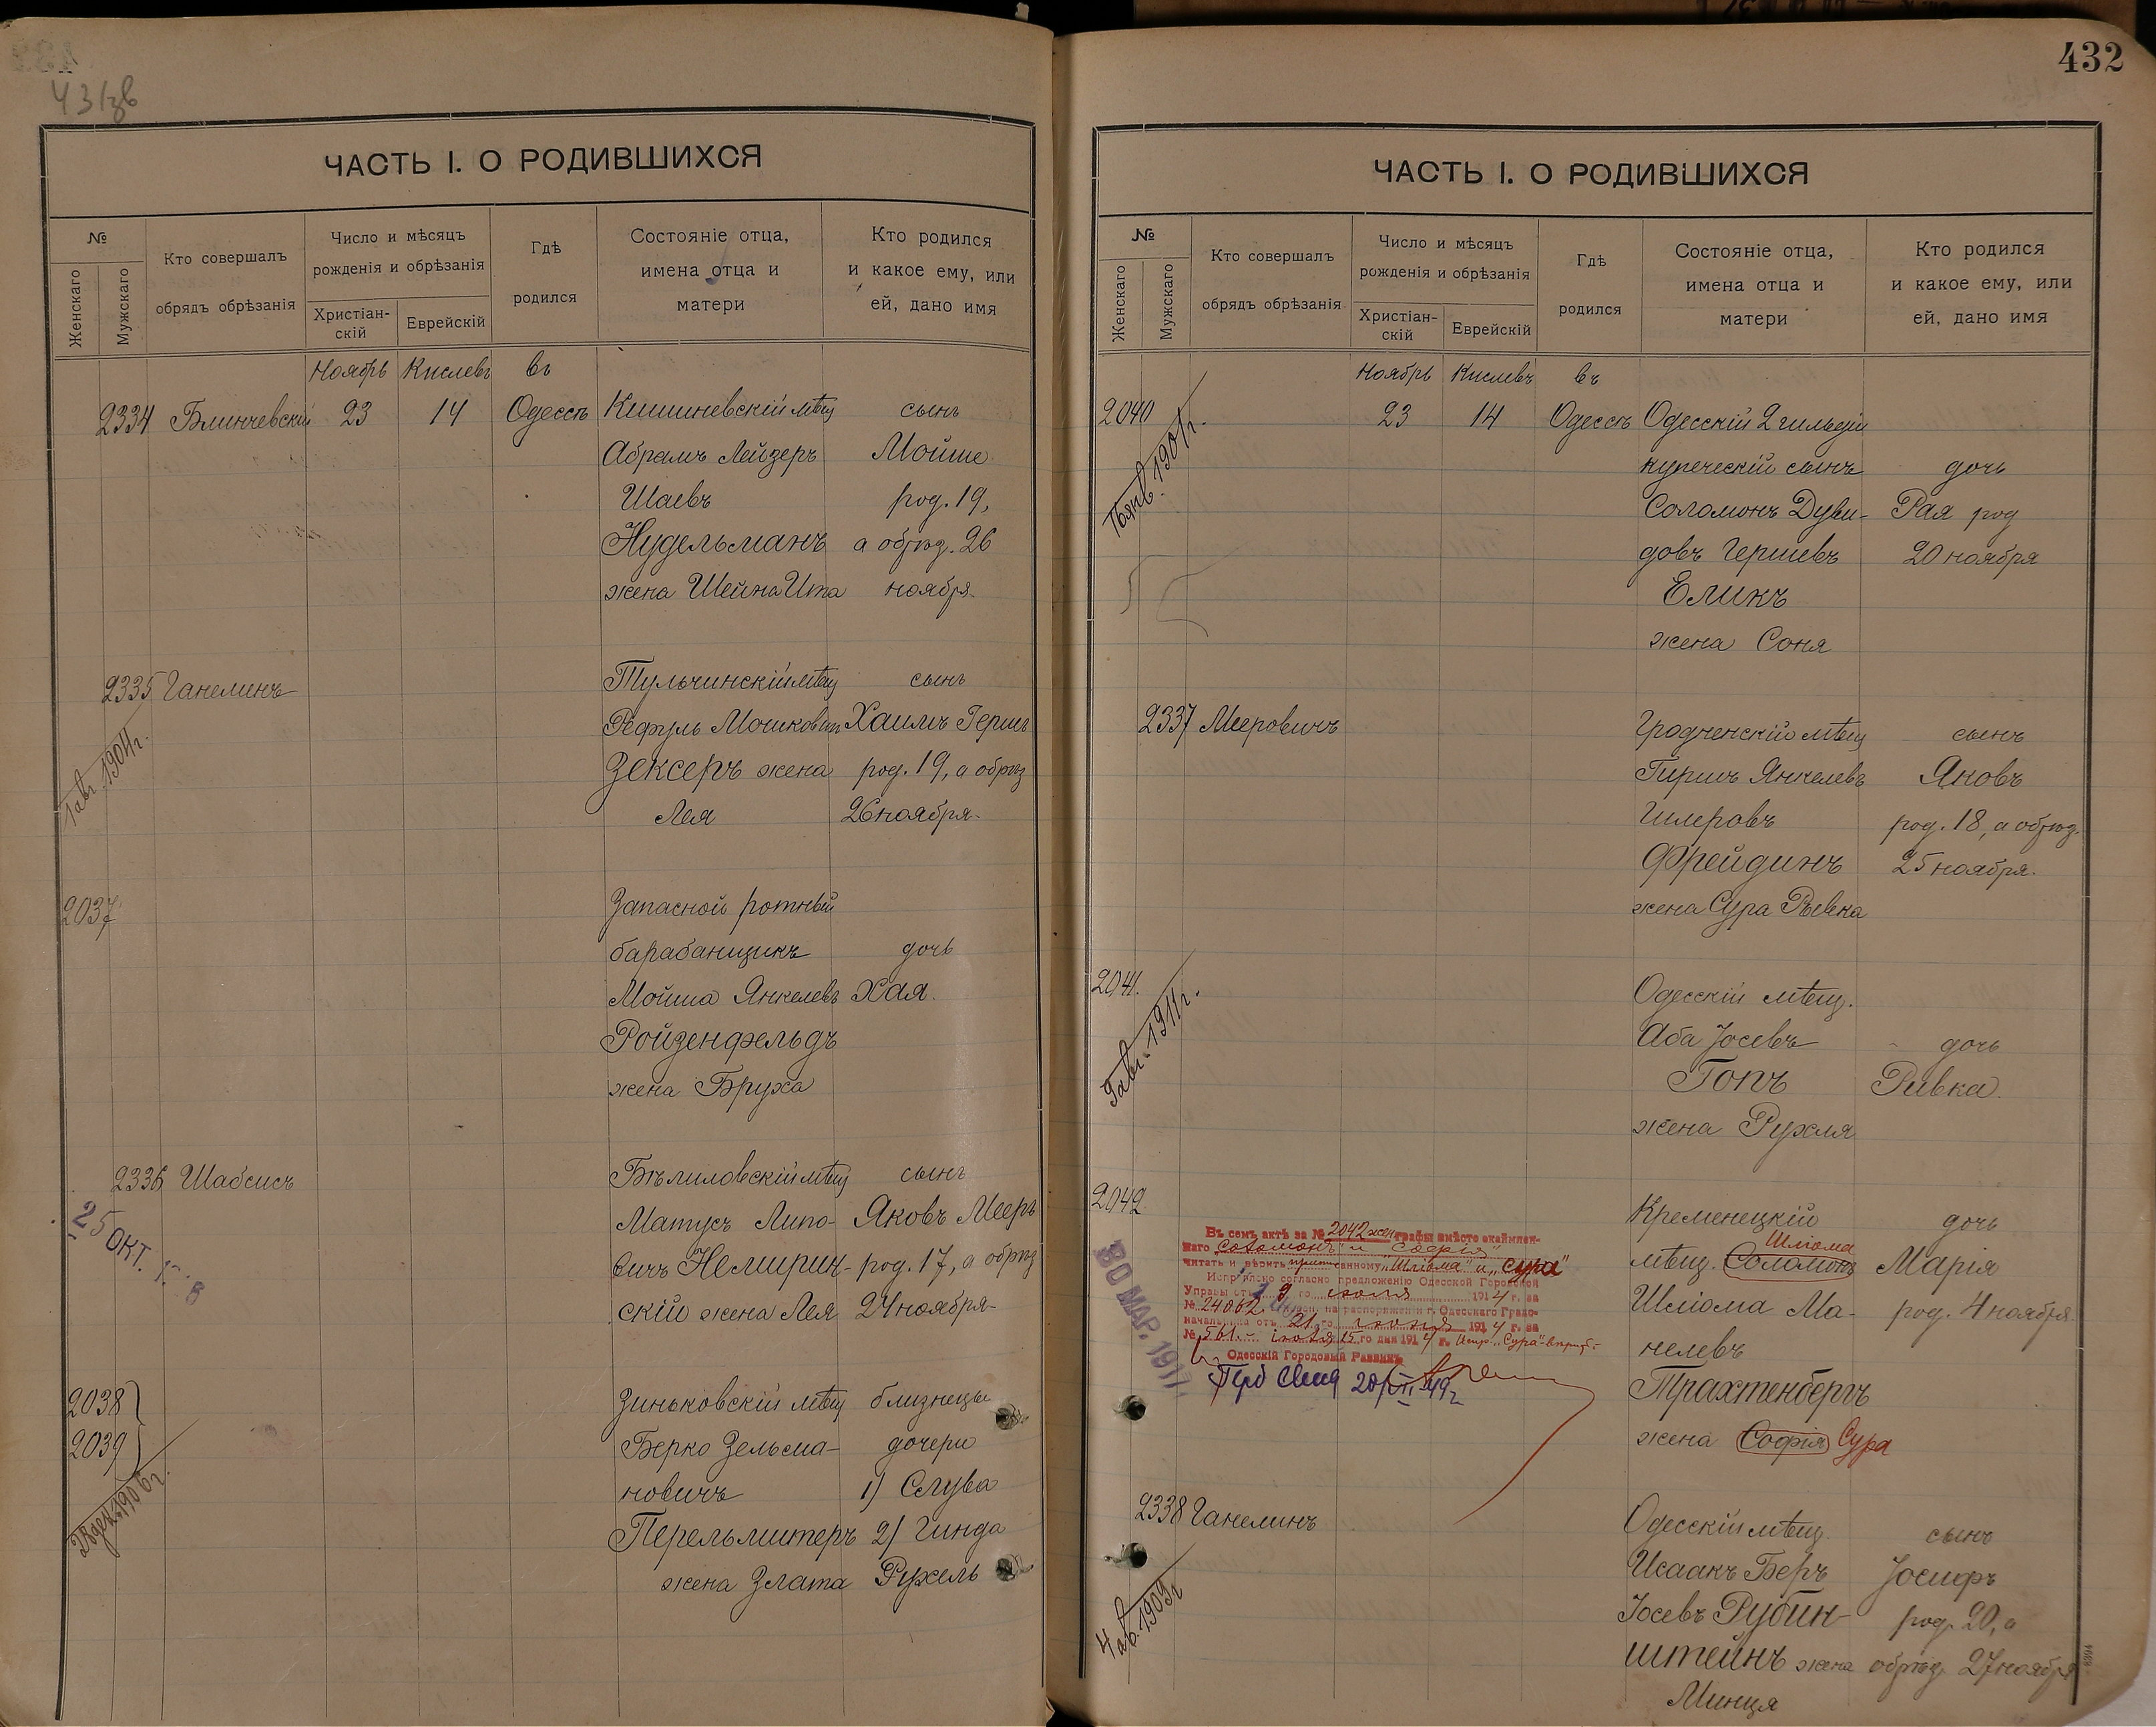 431зв
ЧАСТЬ I. О РОДИВШИХСЯ
№
Женскаго
Мужскаго
Кто совершалъ
обрядъ обрѣзанія
Число и мѣсяцъ
рожденія и обрѣзанія
Христіан-
скій
Еврейскій
Гдѣ
родился
Состояніе отца,
имена отца и
матери
Кто родился
и какое ему, или
ей, дано имя
Ноябрь Кислевъ въ
2334 Блинчевскій 23 14 Одессѣ Кишиневскій мѣщ сынъ
Абрамъ Лейзеръ Мойше
Шаевъ род. 19,
Нудельманъ а обрѣз. 26
жена Шейна Ита ноября.
2335 Ганелинъ Тульчинскій мѣщ сынъ
1 авг. 1904 г.
Рефуль Мошковичъ Хаимъ Герш
Зексеръ жена род. 19, а обрѣз
Лея 26 ноября.
2037 Запасной ротный
барабанщикъ дочь
Мойша Янкелевъ Хая.
Ройзенфельдъ
жена Бруха
2336 Шабсисъ Бѣлиловскій мѣщ сынъ
25 ОКТ.
Матусъ Липо- Яковъ Мееръ
вичъ Немирин- род. 17, а обрѣз
скій жена Лея 24 ноября-
2038 Зиньковскій мѣщ близнецы
2039 Берко Зельма- дочери
28 дек. 1906 г.
новичъ 1) Слува
Перельмитеръ 2) Гинда
жена Злата Рухель
432
ЧАСТЬ I. О РОДИВШИХСЯ
№
Женскаго
Мужскаго
Кто совершалъ
обрядъ обрѣзанія
Число и мѣсяцъ
рожденія и обрѣзанія
Христіан-
скій
Еврейскій
Гдѣ
родился
Состояніе отца,
имена отца и
матери
Кто родился
и какое ему, или
ей, дано имя
Ноябрь Кислевъ въ
2040 23 14 Одессѣ Одесскій 2 гильдіи
купеческій сынъ дочь
Соломонъ Дуви- Рая род
довъ Гершевъ 20 ноября
Еликъ
жена Соня
2337 Мееровичъ Гродненскій мѣщ сынъ
Гиршъ Янкелевъ Яковъ
Шмеровъ род. 18, а обрѣз.
Фрейдинъ 25 ноября.
жена Сура Ривка
2041. Одесскій мѣщ.
9 авг. 1911 г.
Аба Іосевъ дочь
Гопъ Ривка.
жена Рухля
2042 Кременецкій дочь
Шліома
мѣщ. Соломонъ Марія
Шліома Ма- род. 4 ноября.
нелевъ
Трахтенбергъ
жена Софія Сура
Въ семъ актѣ за № 2042 жен графы вмѣсто окаймлен-
наго „Соломонъ" и „Софія"
читать и вѣрить приписанному „Шліома" и „Сура"
Исправлено согласно предложенію Одесской Городской
Управы отъ 9 го іюля 1914 г. за
№ 24062 на распоряженіи г. Одесскаго Градо-
начальника отъ 21 го іюня 1914 г. за
№ 561. іюля 15 го дня 1914 г.
Одесскій Городовый Раввинъ
30 МАР. 1917
2338 Ганелинъ Одесскій мѣщ. сынъ
4 ав. 1909 г
Исаакъ Беръ Іосифъ
Іосевъ Рубин- род. 20, а
штейнъ жена обрѣз. 27 ноября
Минця